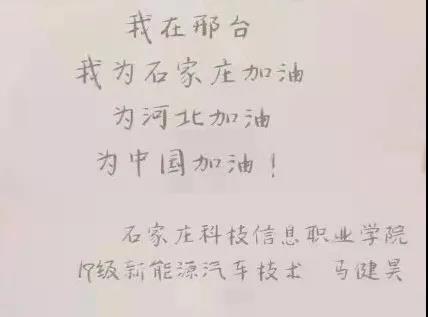 我在邢台
我为石家庄加油
为河北加油
为中国加油！
石家庄科技信息职业学院
19级新能源汽车技术 马健昊